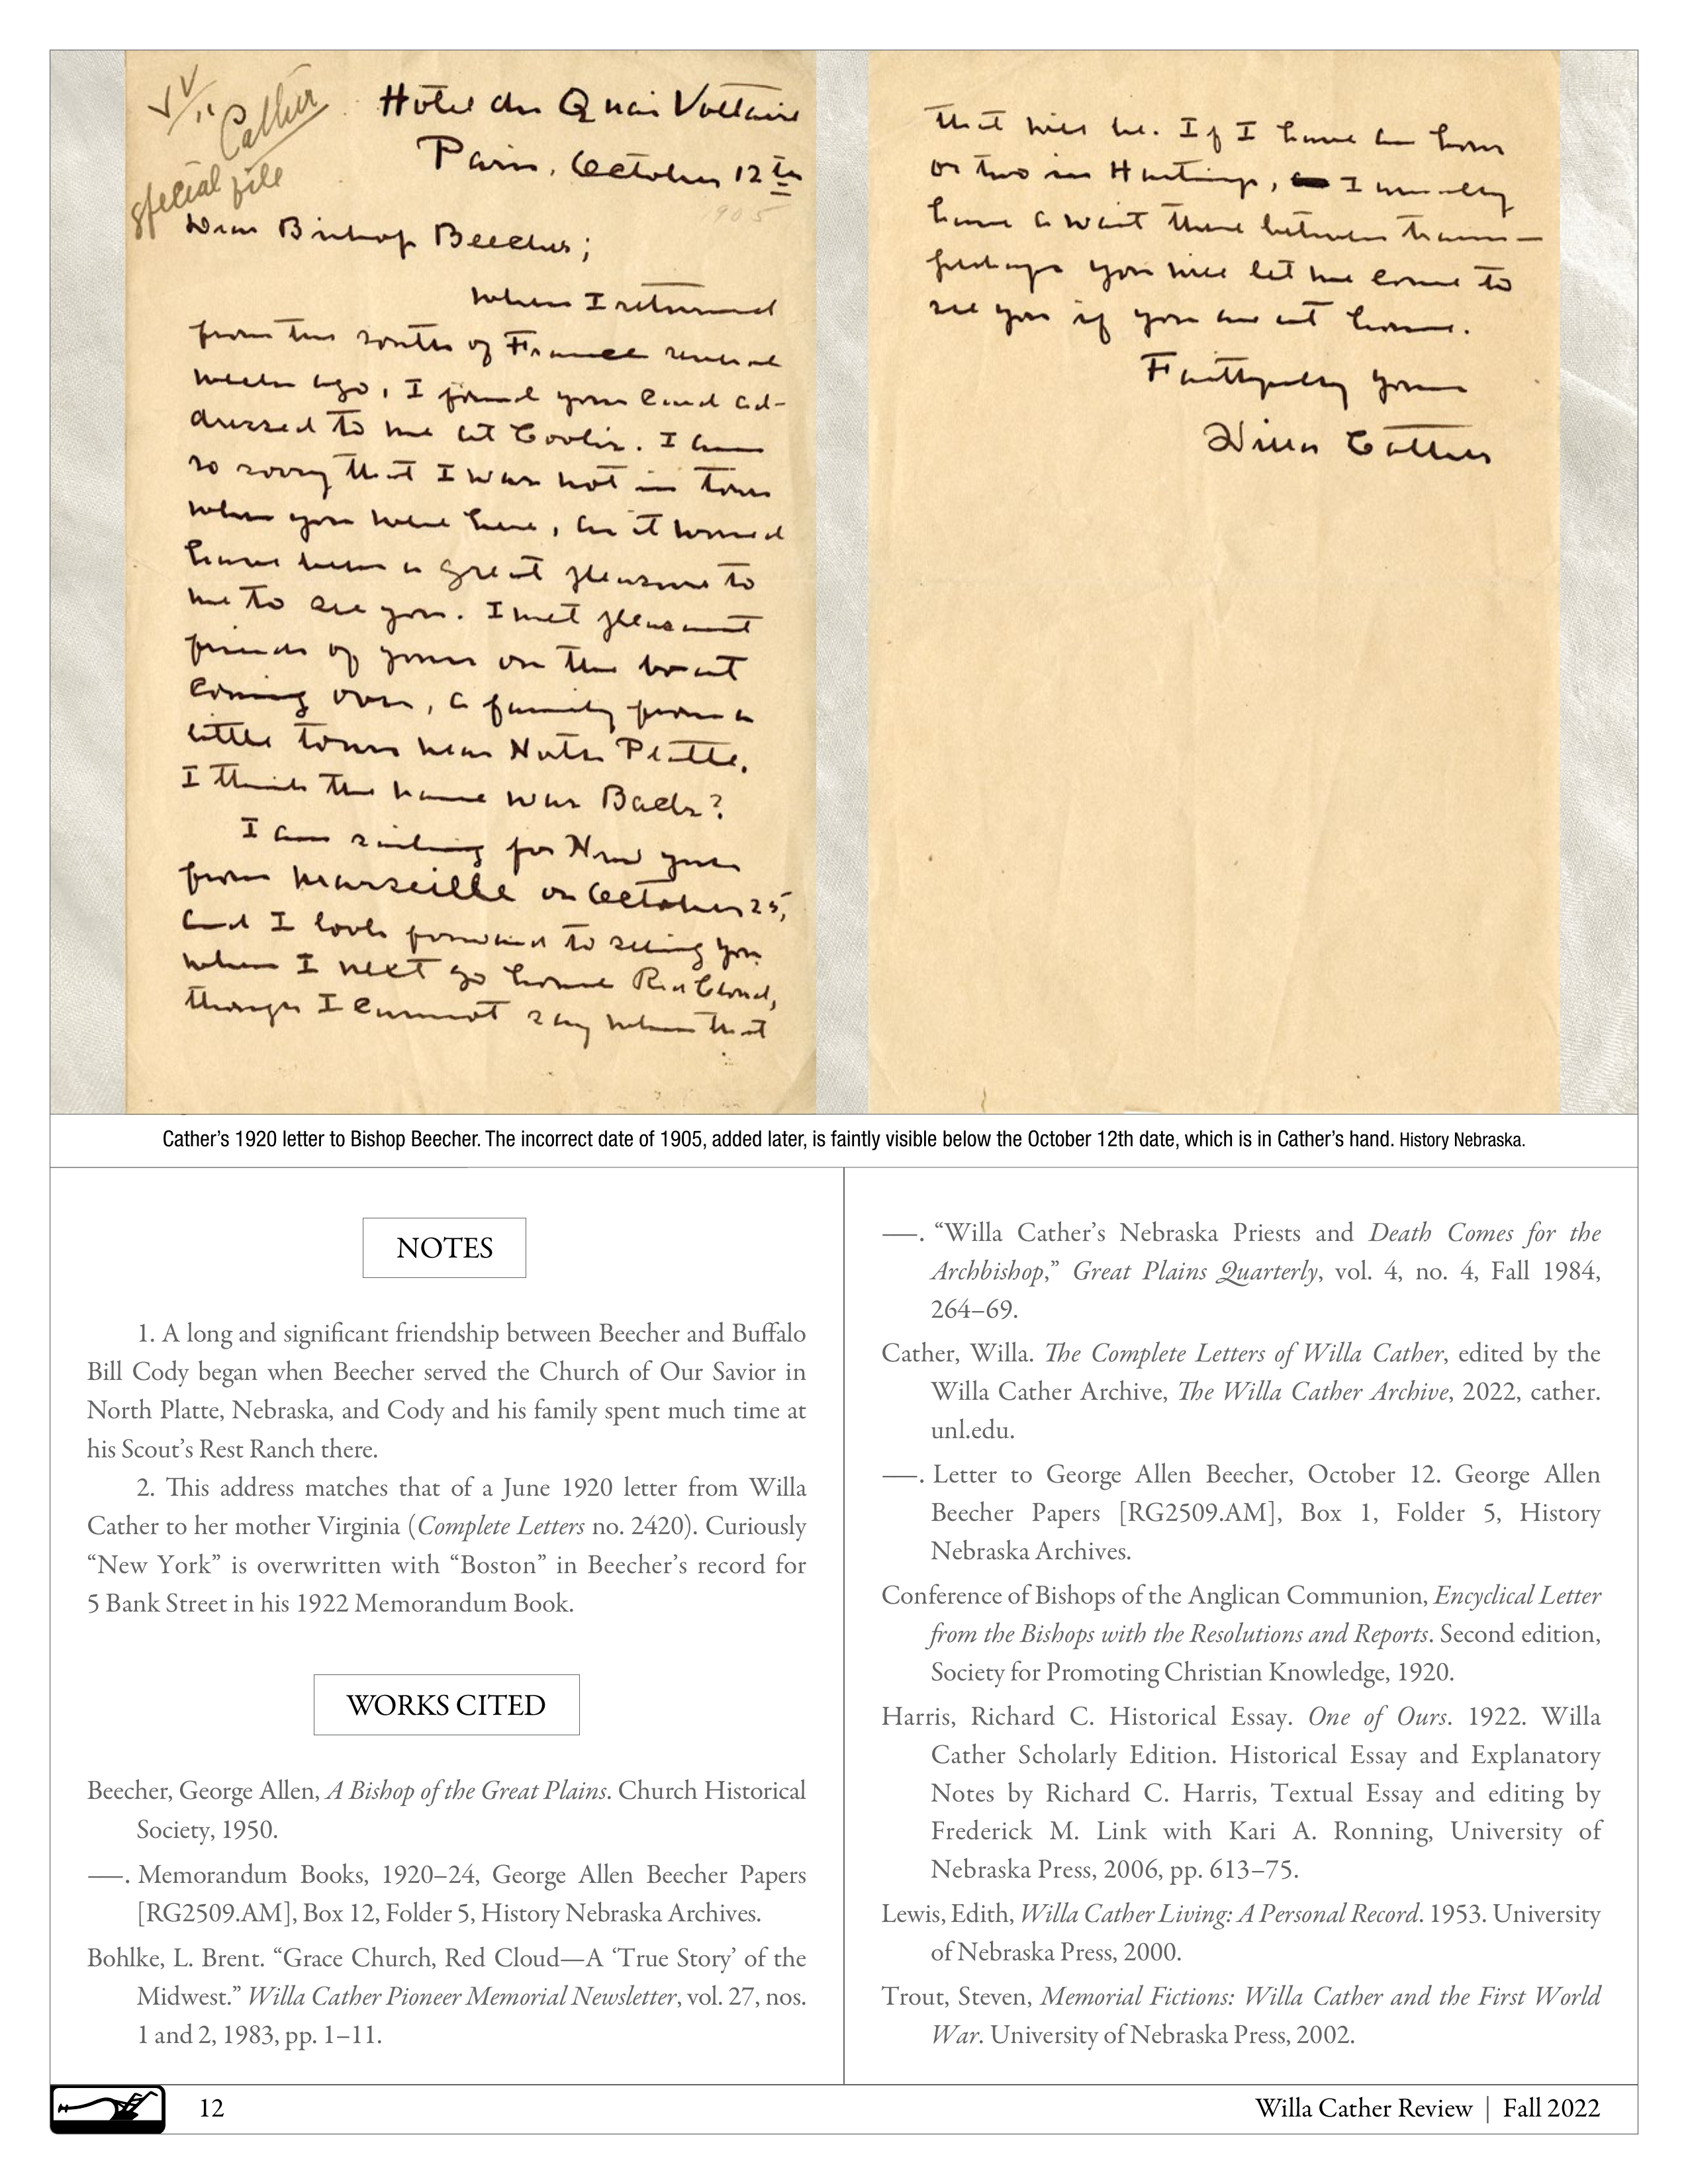 Cather
special file
Hôtel du Quai Voltaire
Paris, October 12th
1905
Dear Bishop Beecher;
When I returned
from the south of France several
weeks ago, I found your card ad-
dressed to me at Cook's. I am
so sorry that I was not in town
when you were here, as it would
have been a great pleasure to
me to see you. I met pleasant
friends of yours on the boat
coming over, a family from a
little town near North Platte.
I think the name was
I am sailing for New York
from Marseille on October 25,
and I look forward to seeing you
when I next go home Red Cloud,
though I cannot say when that
that will be. If I have an hour
or two in Hastings, I usually
have a wait there between trains—
perhaps you will let me come to
see you if you are at home.
Faithfully yours
Willa Cather
Cather's 1920 letter to Bishop Beecher. The incorrect date of 1905, added later, is faintly visible below the October 12th date, which is in Cather's hand. History Nebraska.
NOTES
1. A long and significant friendship between Beecher and Buffalo
Bill Cody began when Beecher served the Church of Our Savior in
North Platte, Nebraska, and Cody and his family spent much time at
his Scout's Rest Ranch there.
2. This address matches that of a June 1920 letter from Willa
Cather to her mother Virginia (Complete Letters no. 2420). Curiously
“New York” is overwritten with “Boston” in Beecher's record for
5 Bank Street in his 1922 Memorandum Book.
WORKS CITED
Beecher, George Allen, A Bishop of the Great Plains. Church Historical
Society, 1950.
—. Memorandum Books, 1920–24, George Allen Beecher Papers
[RG2509.AM], Box 12, Folder 5, History Nebraska Archives.
Bohlke, L. Brent. “Grace Church, Red Cloud—A ‘True Story’ of the
Midwest.” Willa Cather Pioneer Memorial Newsletter, vol. 27, nos.
1 and 2, 1983, pp. 1–11.
—. “Willa Cather's Nebraska Priests and Death Comes for the
Archbishop,” Great Plains Quarterly, vol. 4, no. 4, Fall 1984,
264–69.
Cather, Willa. The Complete Letters of Willa Cather, edited by the
Willa Cather Archive, The Willa Cather Archive, 2022, cather.
unl.edu.
—. Letter to George Allen Beecher, October 12. George Allen
Beecher Papers [RG2509.AM], Box 1, Folder 5, History
Nebraska Archives.
Conference of Bishops of the Anglican Communion, Encyclical Letter
from the Bishops with the Resolutions and Reports. Second edition,
Society for Promoting Christian Knowledge, 1920.
Harris, Richard C. Historical Essay. One of Ours. 1922. Willa
Cather Scholarly Edition. Historical Essay and Explanatory
Notes by Richard C. Harris, Textual Essay and editing by
Frederick M. Link with Kari A. Ronning, University of
Nebraska Press, 2006, pp. 613–75.
Lewis, Edith, Willa Cather Living: A Personal Record. 1953. University
of Nebraska Press, 2000.
Trout, Steven, Memorial Fictions: Willa Cather and the First World
War. University of Nebraska Press, 2002.
12
Willa Cather Review | Fall 2022